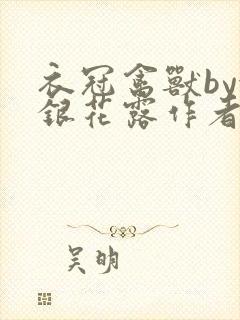 衣冠禽獸by
銀花露作者
吴明